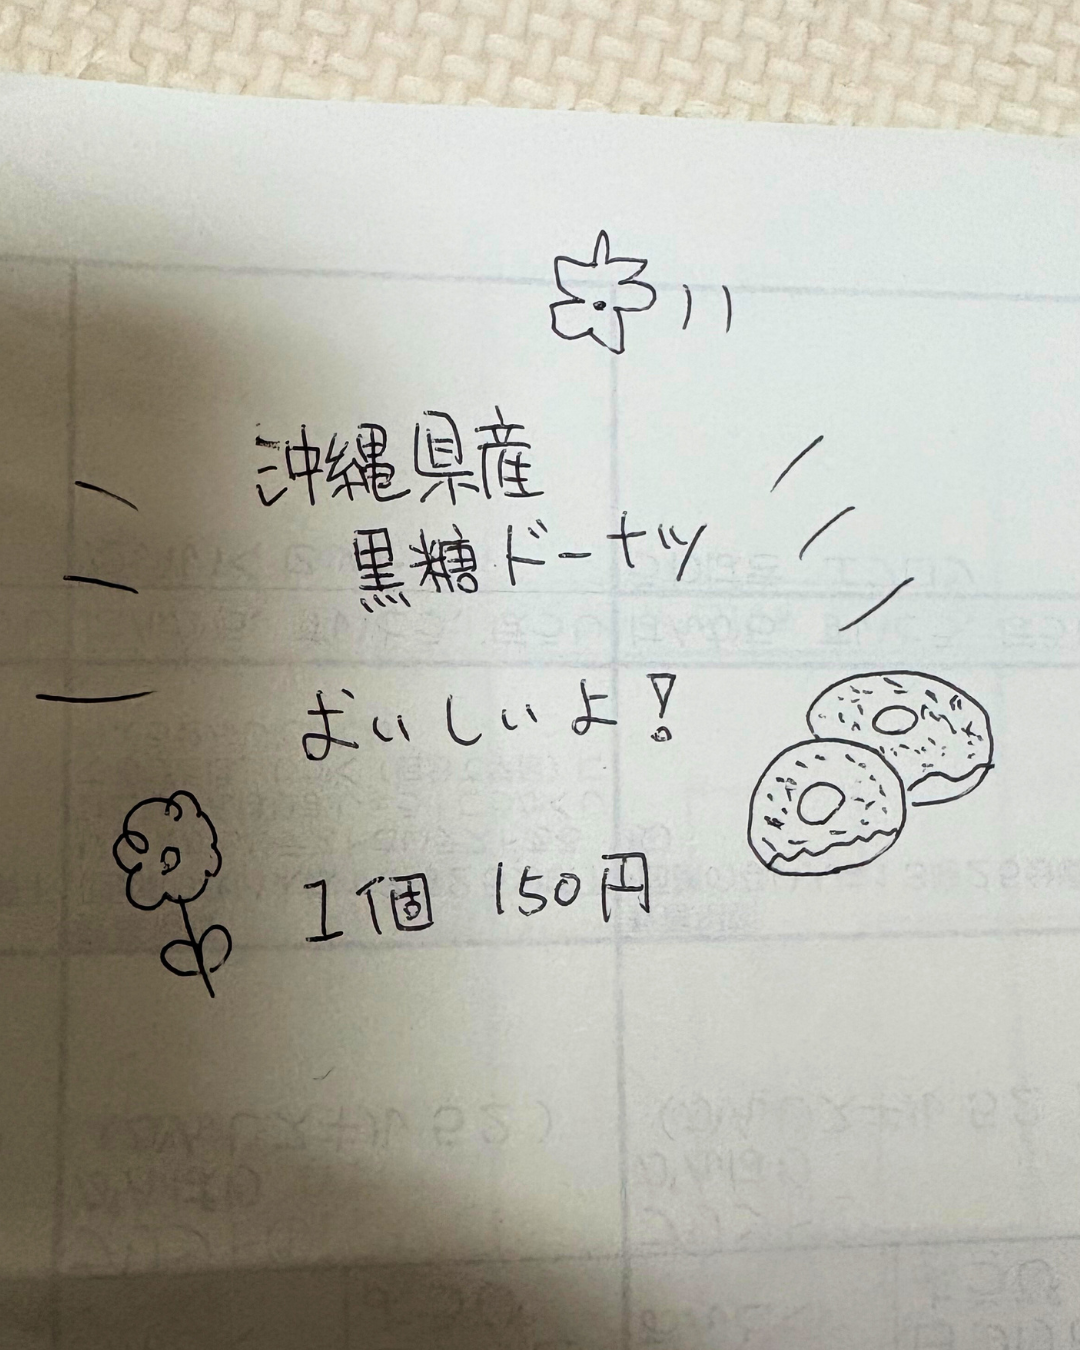 沖縄県産
黒糖ドーナツ
おいしいよ！
1個 150円